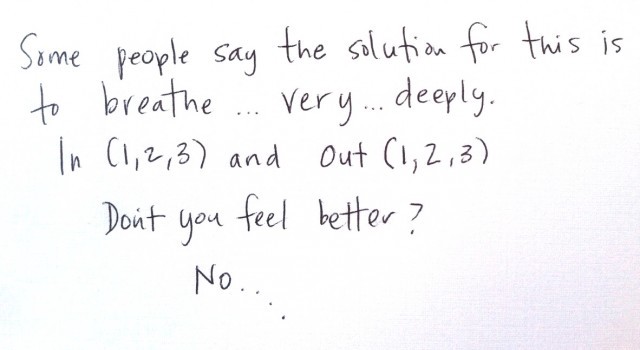 Some people say the solution for this is
to breathe ... very ... deeply.
In (1,2,3) and out (1,2,3)
Don't you feel better?
No....